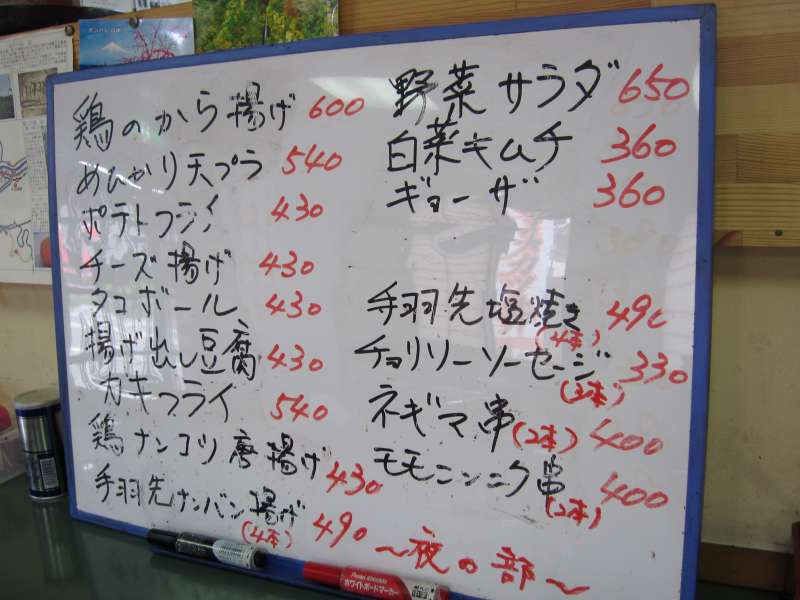 鶏のから揚げ 600
めひかり天プラ 540
ポテトフライ 430
チーズ揚げ 430
タコボール 430
揚げ出し豆腐 430
カキフライ 540
鶏ナンコツ唐揚げ 430
手羽先ナンバン揚げ (4本) 490
野菜サラダ 650
白菜キムチ 360
ギョーザ 360
手羽先塩焼き (4本) 490
チョリソーソーセージ (3本) 330
ネギマ串 (2本) 400
モモニンニク串 (2本) 400
〜夜の部〜
ホワイトボードマーカー